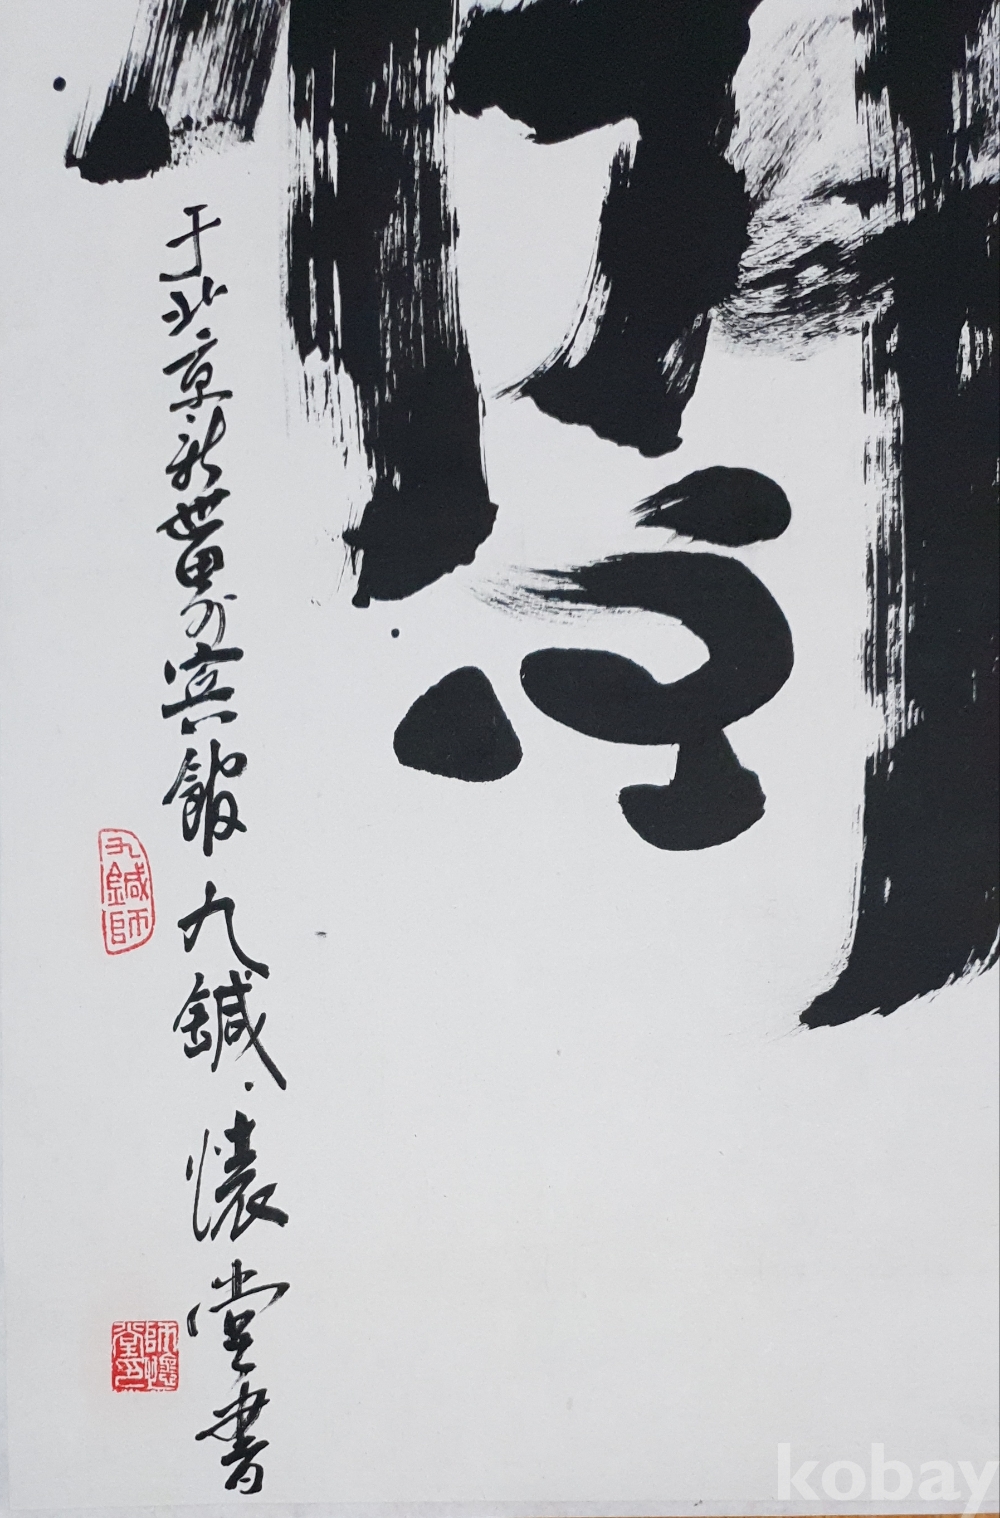 于北京新世界賓館九鍼·懷堂書
九鍼師
師懷堂印
kobay